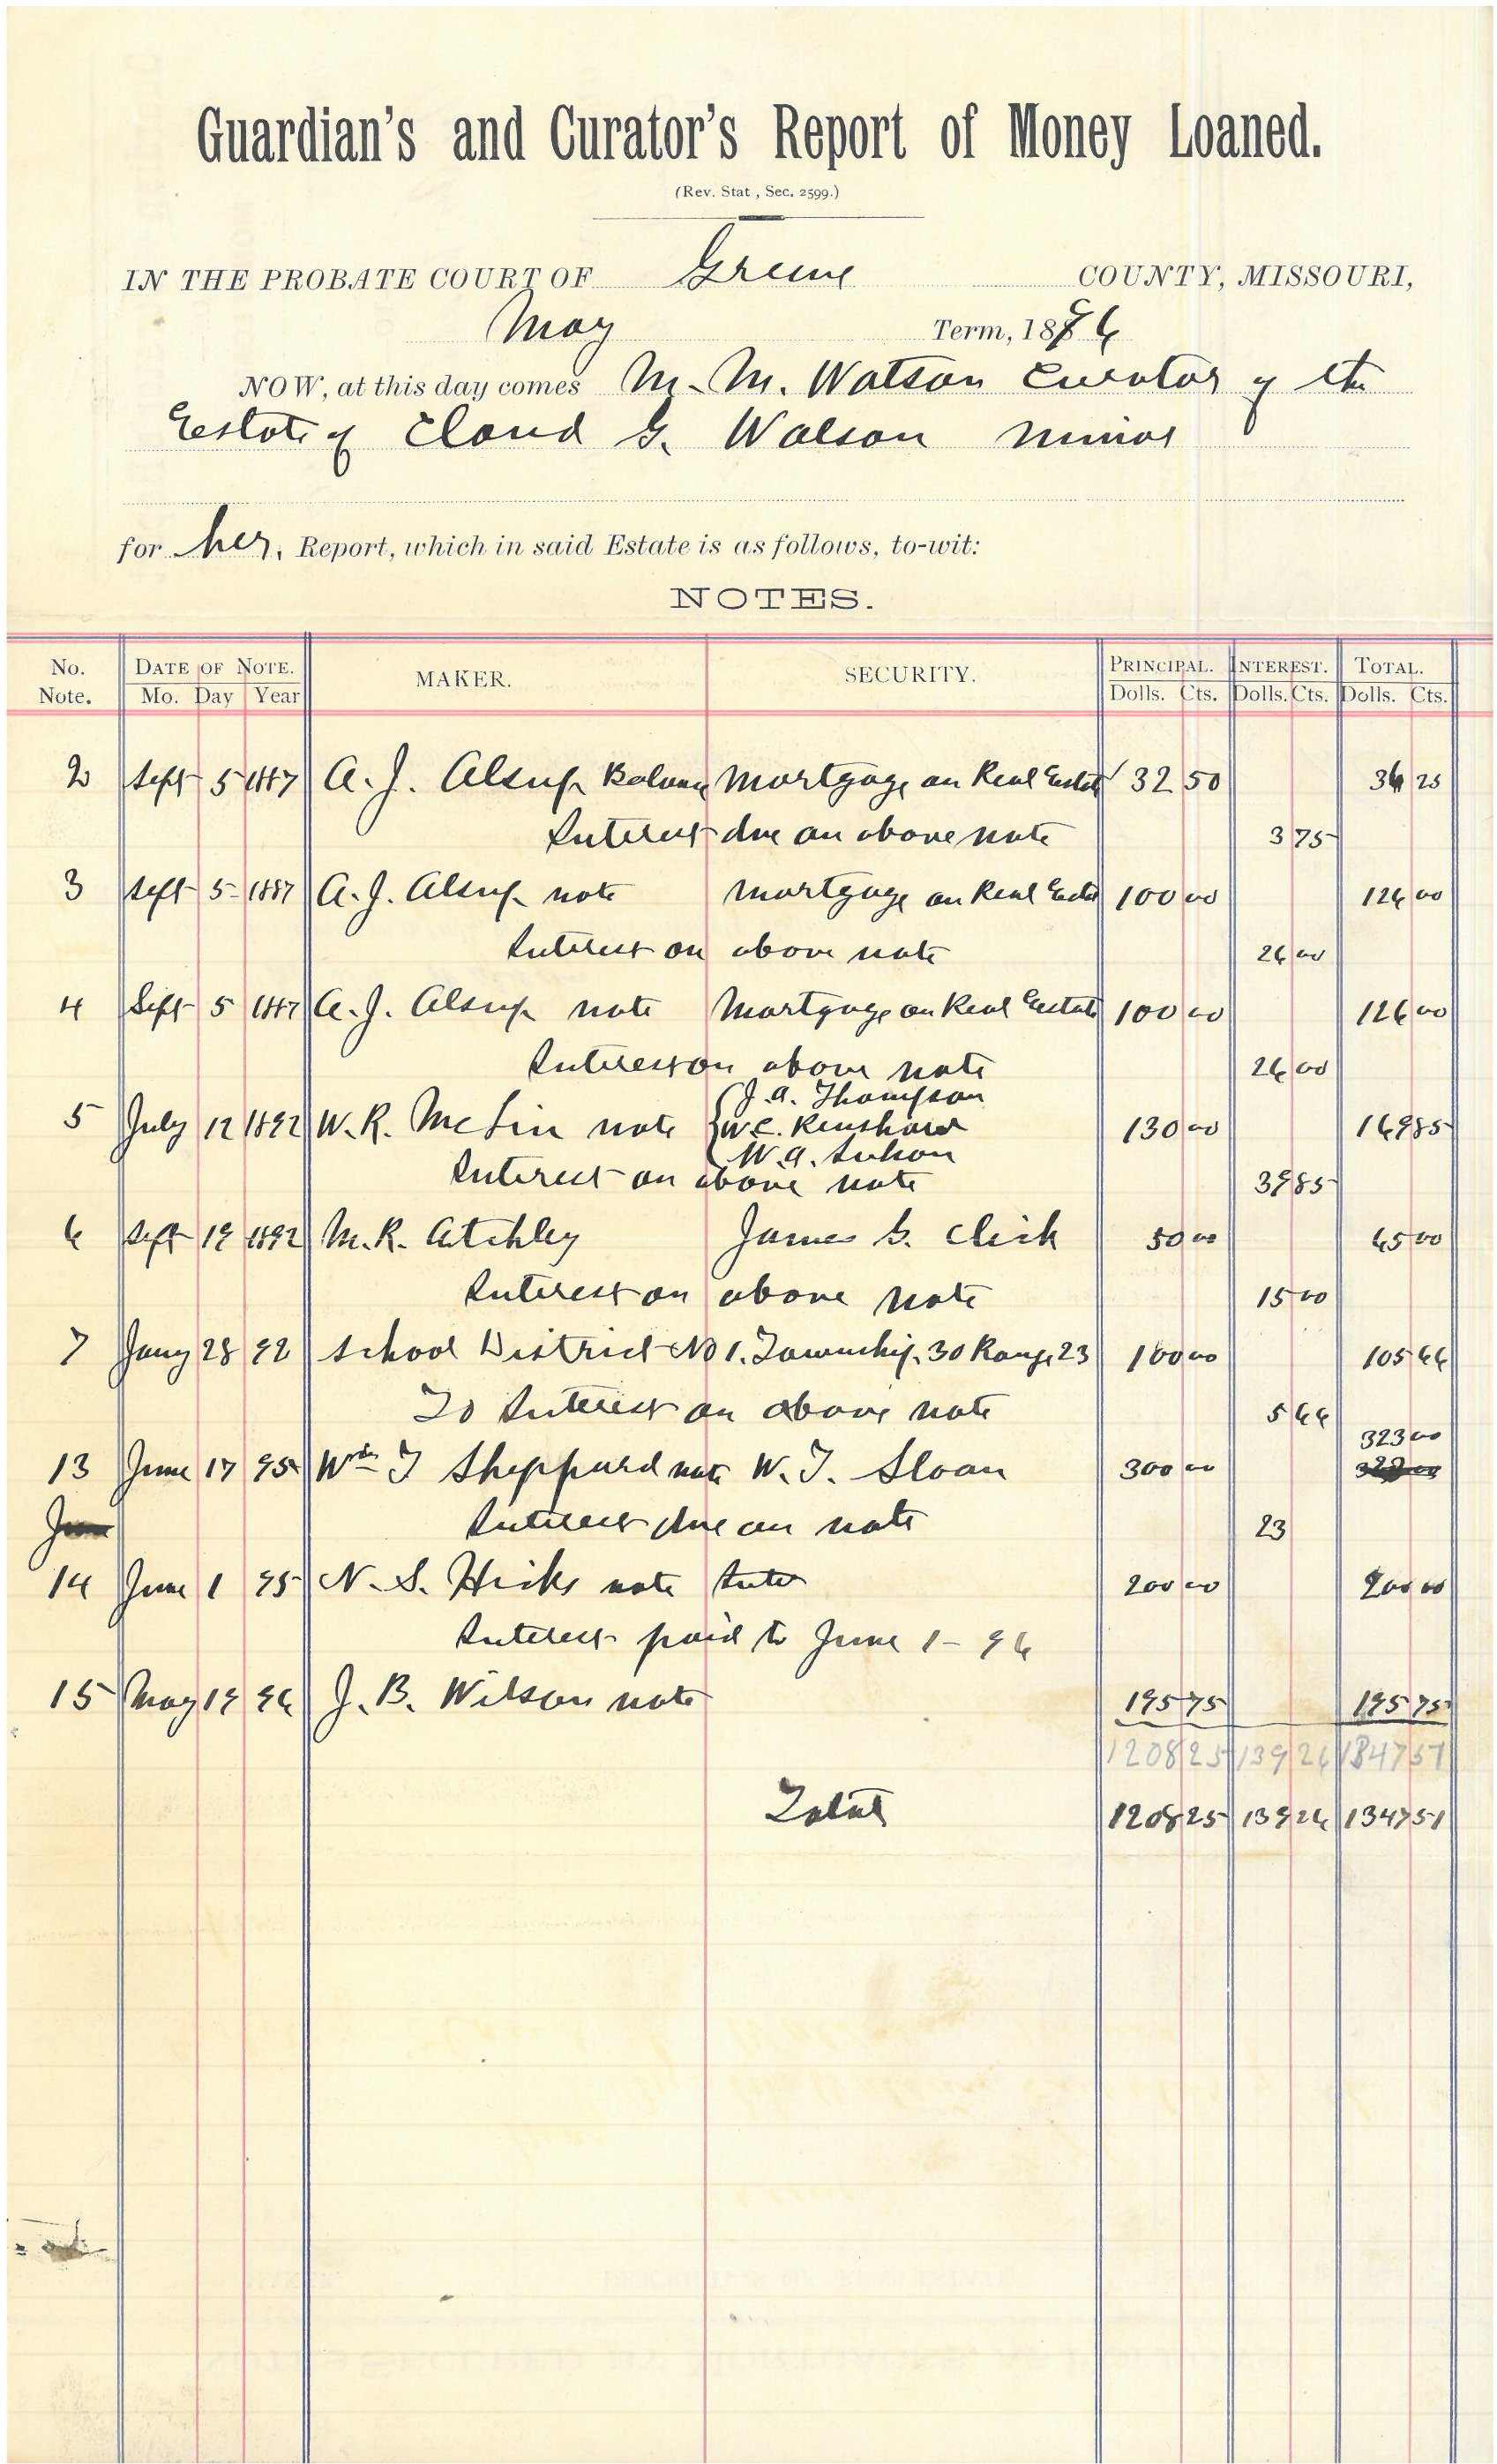 Guardian's and Curator's Report of Money Loaned.
(Rev. Stat , Sec. 2599.)
IN THE PROBATE COURT OF Greene COUNTY, MISSOURI,
May Term, 1896
NOW, at this day comes M. M. Watson Curator of the
Estate of Claud G. Watson minor
for her, Report, which in said Estate is as follows, to-wit:
NOTES.
No. Note. DATE OF NOTE. Mo. Day Year MAKER. SECURITY. PRINCIPAL. Dolls. Cts. INTEREST. Dolls. Cts. TOTAL. Dolls. Cts.
2 Sept 5 1887 A. J. Alsup Balance Mortgage on Real Estate 32 50 36 25
Interest due on above note 3 75
3 Sept 5 1887 A. J. Alsup note Mortgage on Real Estate 100 00 126 00
Interest on above note 26 00
4 Sept 5 1887 A. J. Alsup note Mortgage on Real Estate 100 00 126 00
Interest on above note 26 00
J. A. Thompson
5 July 12 1892 W. R. McLin note W. C. Renshaw 130 00 169 85
W. A.
Interest on above note 39 85
6 Sept 19 1892 M. R. Atchley James G. Click 50 00 65 00
Interest on above note 15 00
7 Jany 28 92 School District No 1. Township 30 Range 23 100 00 105 66
To Interest on above note 5 66
323 00
13 June 17 95 Wm T Sheppard note W. T. Sloan 300 00
June Interest due on note 23
14 June 1 95 N. S. Hicks note 200 00 200 00
Interest paid to June 1 - 96
15 May 19 96 J. B. Wilson note 195 75 195 75
1208 25 139 26 1347 51
Total 1208 25 139 26 1347 51